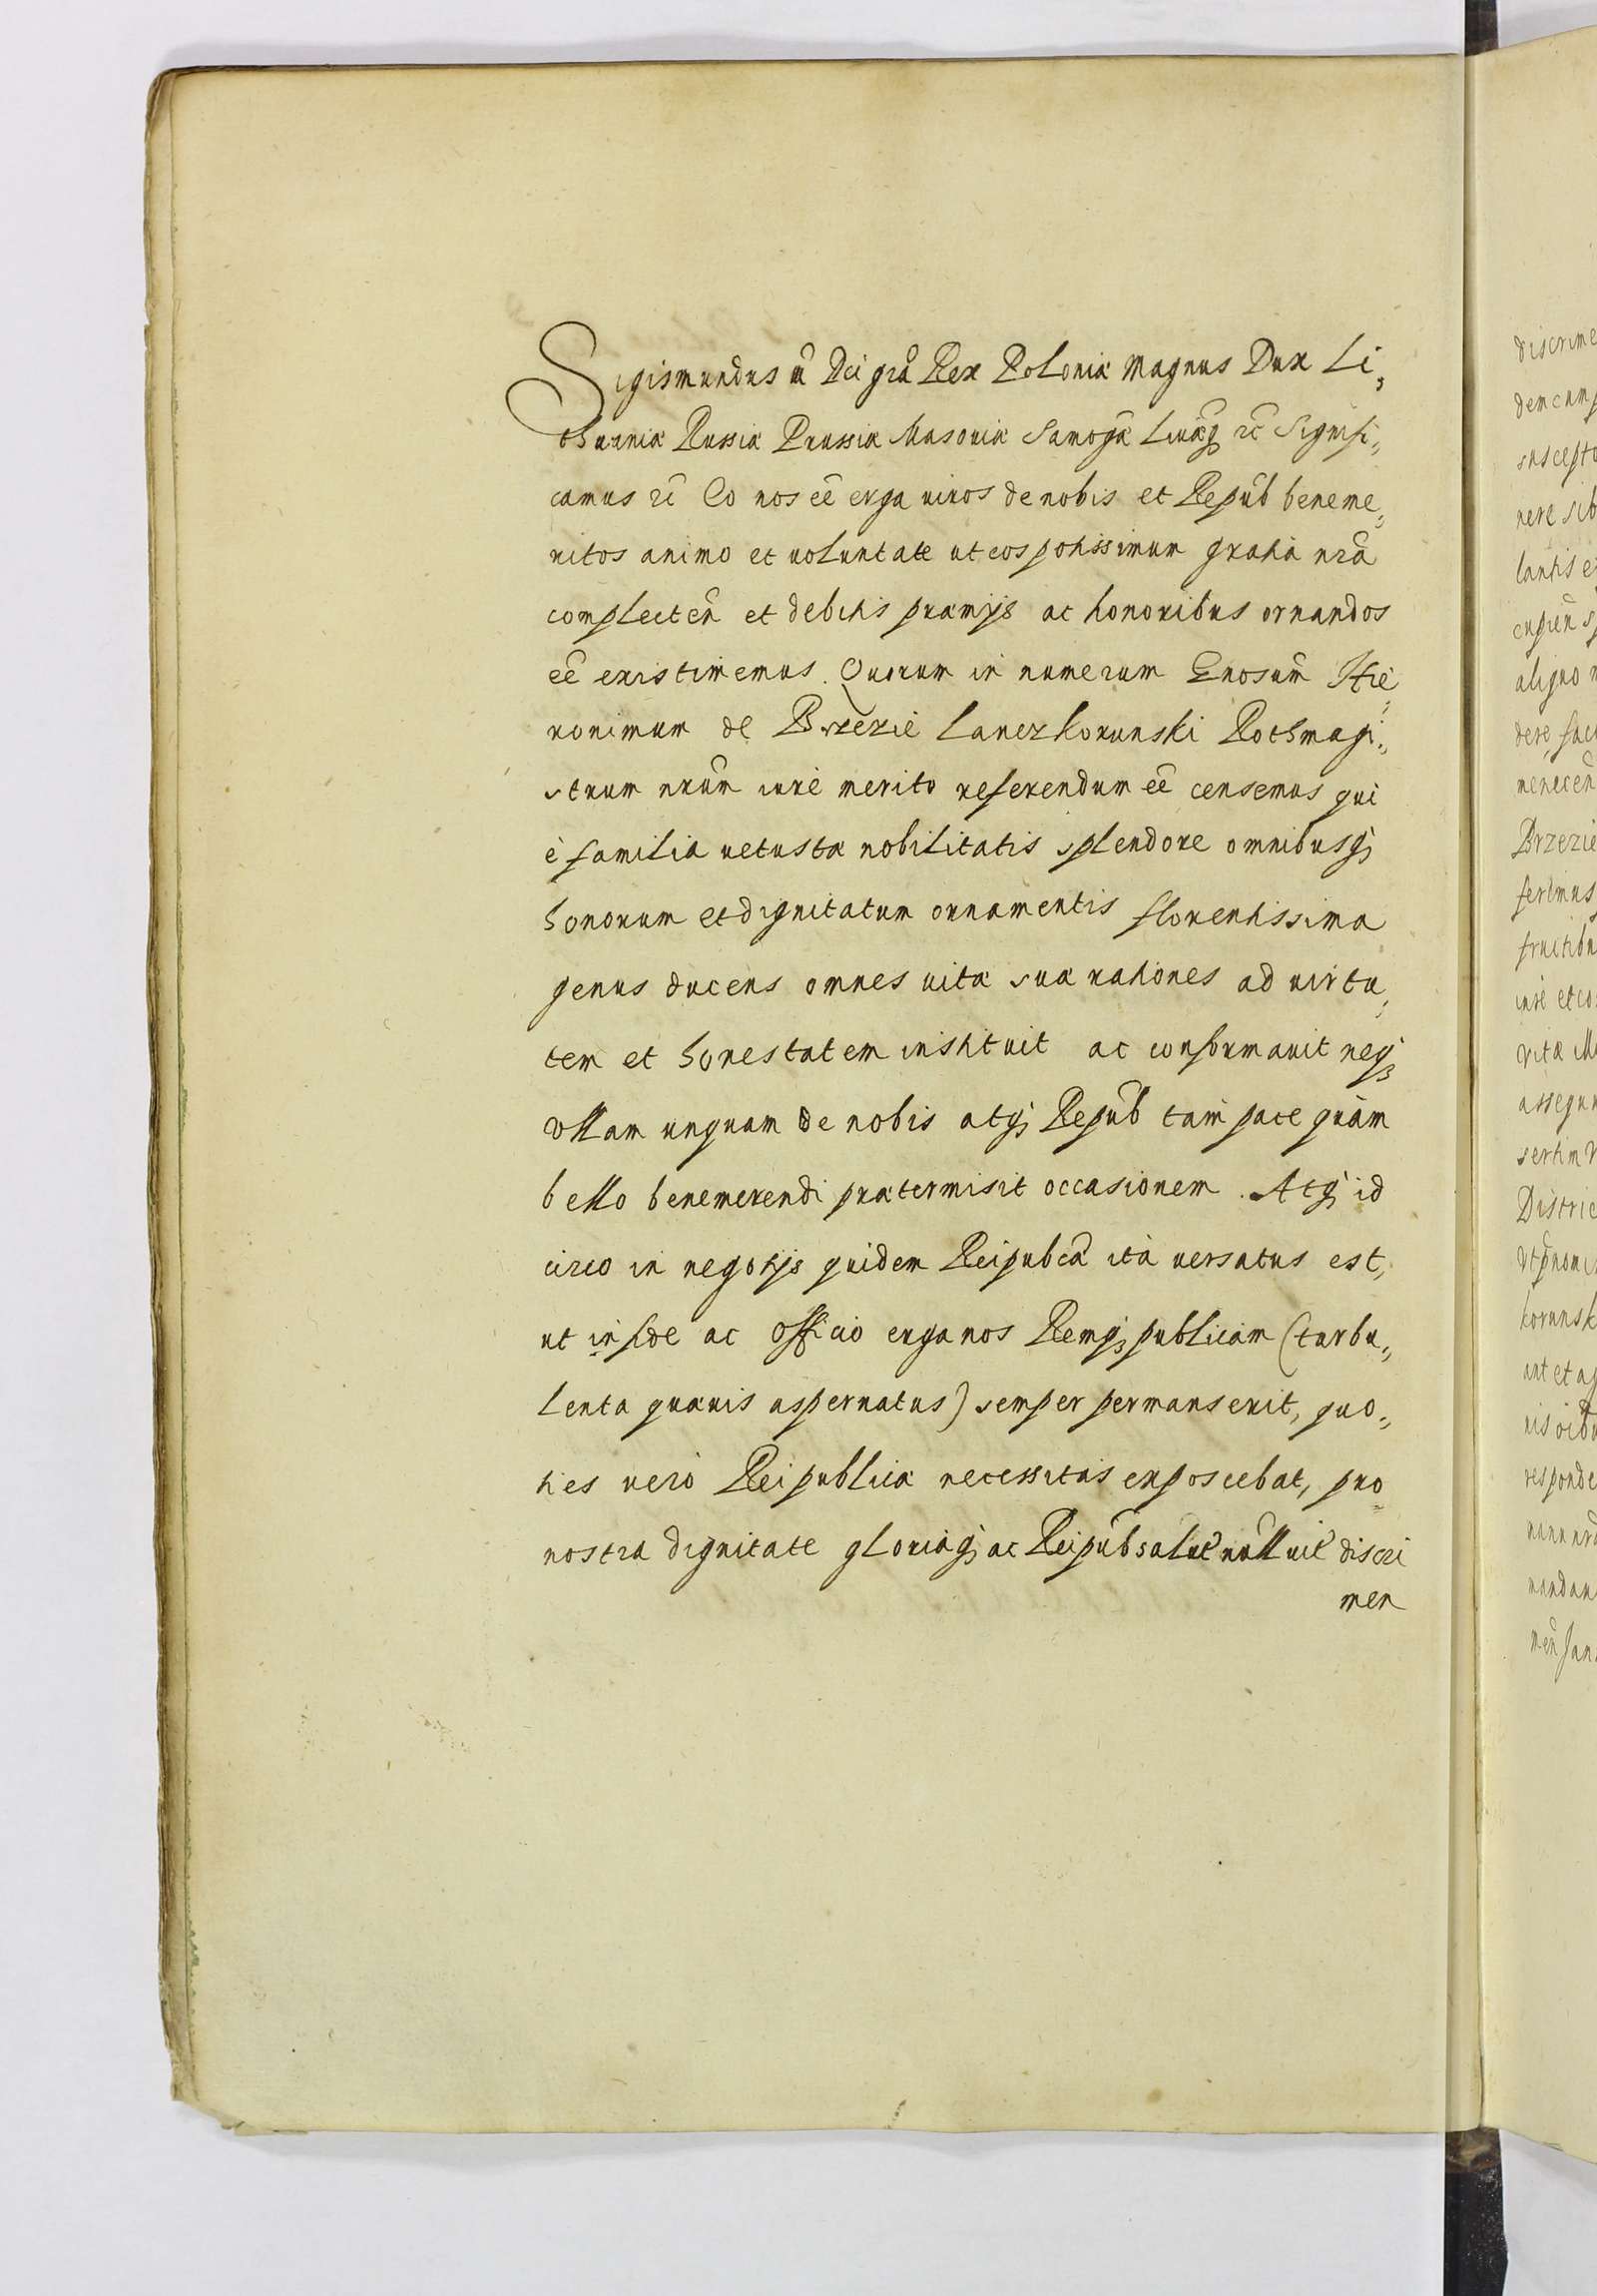 Sigismundus iii Dei grã Rex Poloniæ Magnus Dux Li„
thuaniæ Russiæ Prussiæ Masouiæ Samogᷓ Liuᷓq; rc̃ Signifi„
camus rc̃ Eo nos eẽ erga uiros de nobis et Repub̃ beneme„
ritos animo et uoluntate ut eos potissimum gratia nr̃a
complecteñ et debitis præmijs ac honoribus ornandos
eẽ existimemus. Quorum in numerum Gnosum̃ Hie„
ronimum de Brzezie Lanczkorunski Rothmagi„
strum nrũm iure merito referendum eẽ censemus qui
è familia uetusta nobilitatis splendore omnibusq;
honorum et dignitatum ornamentis florentissima
genus ducens omnes uitæ suæ rationes ad uirtu„
tem et honestatem instituit ac conformauit neq;
ullam unquam de nobis atq; Repub̃ tam pace quàm
bello benemerendi prætermisit occasionem. Atq; id
circo in negotijs quidem Reipubcæ̃ ità uersatus est,
ut in fide ac officio erga nos Remq; publicam (turbu„
lenta quæuis aspernatus) semper permanserit, quo„
ties uerò Reipublicæ necessitas exposcebat, pro
nostra dignitate gloriaq; ac Reipub̃ salutẽ null uitẽ discri
men
discrime
dem cum
suscept
nere sib
lantis e
cupien
aliquo
dere fac
menecen
Brzezie
ferimus
fructibu
iure et co
vitæ
assequ
sertim
Distric
korunsk
ant et a
responde
mandan